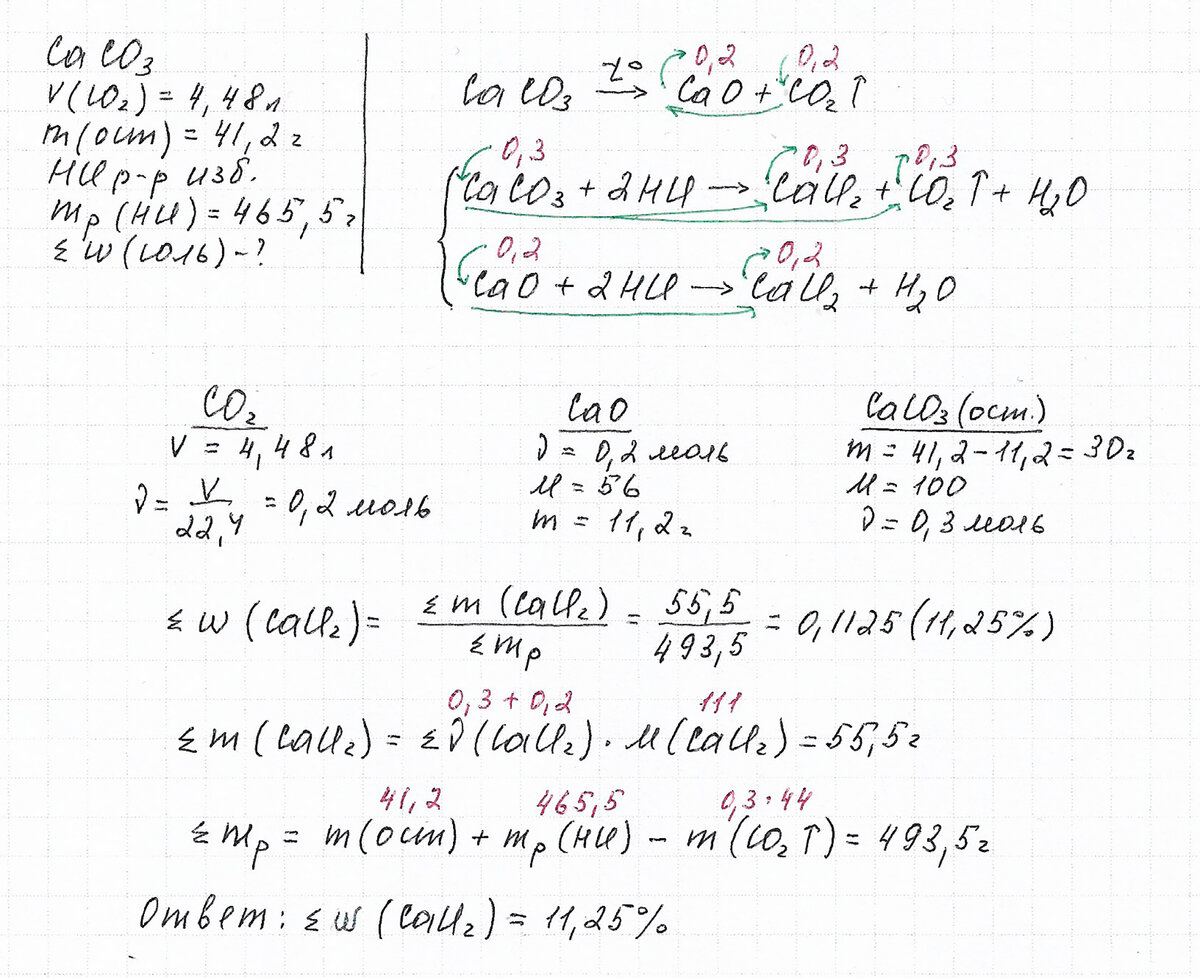 CaCO₃
V(CO₂) = 4,48л
m(ост) = 41,2г
HCl р-р изб.
mр(HCl) = 465,5г
Σ W(соль) - ?
0,2 0,2
CaCO₃ —t°→ CaO + CO₂↑
0,3 0,3 0,3
CaCO₃ + 2HCl → CaCl₂ + CO₂↑ + H₂O
0,2 0,2
CaO + 2HCl → CaCl₂ + H₂O
CO₂
V = 4,48л
ν = V/22,4 = 0,2 моль
CaO
ν = 0,2 моль
M = 56
m = 11,2г
CaCO₃(ост.)
m = 41,2-11,2 = 30г
M = 100
ν = 0,3 моль
Σ W (CaCl₂) = Σ m (CaCl₂)/Σ mр = 55,5/493,5 = 0,1125 (11,25%)
0,3 + 0,2 111
Σ m (CaCl₂) = Σ ν (CaCl₂) · M (CaCl₂) = 55,5г
41,2 465,5 0,3·44
Σ mр = m(ост) + mр(HCl) - m(CO₂↑) = 493,5г
Ответ: Σ W (CaCl₂) = 11,25%